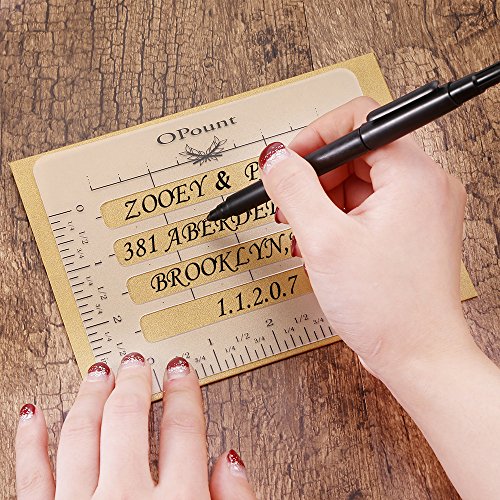 OPount
ZOOEY & P
381 ABERDE
BROOKLYN,
1.1.2.0.7
0
1/2
1
1/2
2
1/2
0
1/4 1/2 3/4 1 1/4 1/2 3/4 2 1/4 1/2 3/4